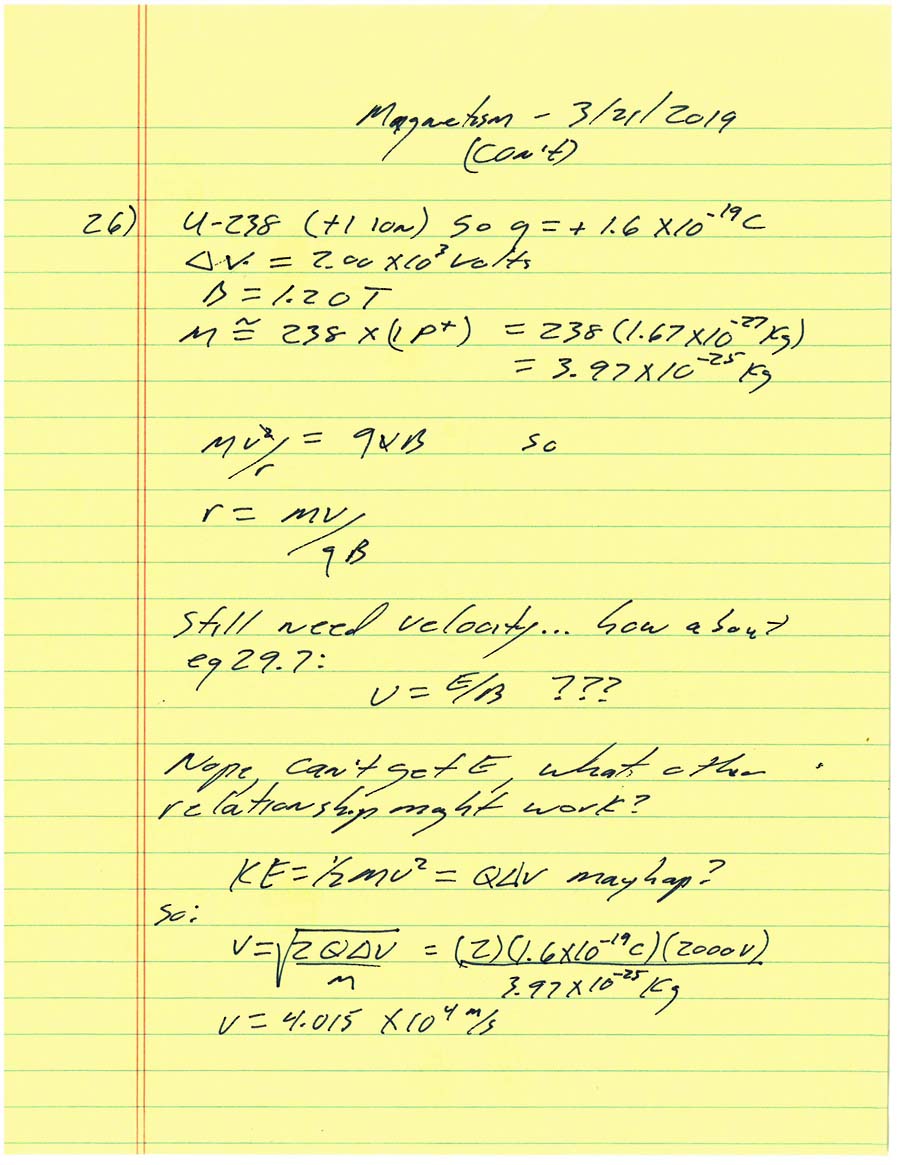 Magnetism - 3/21/2019
(con't)
26) U-238 (+1 ion) so q = + 1.6 X10⁻¹⁹ C
ΔV = 2.00 x10³ volts
B = 1.20 T
M ≅ 238 x (1 p⁺) = 238 (1.67 x10⁻²⁷ Kg)
= 3.97 x10⁻²⁵ Kg
mv²/r = qvB so
r = mv/qB
Still need velocity... how about
eq 29.7:
v = E/B ???
Nope, can't get E, what other
relationship might work?
KE = ½mv² = QΔV mayhap?
so:
v = √2QΔV/m = (2)(1.6x10⁻¹⁹ C)(2000V)/3.97 x10⁻²⁵ Kg
v = 4.015 x10⁴ m/s